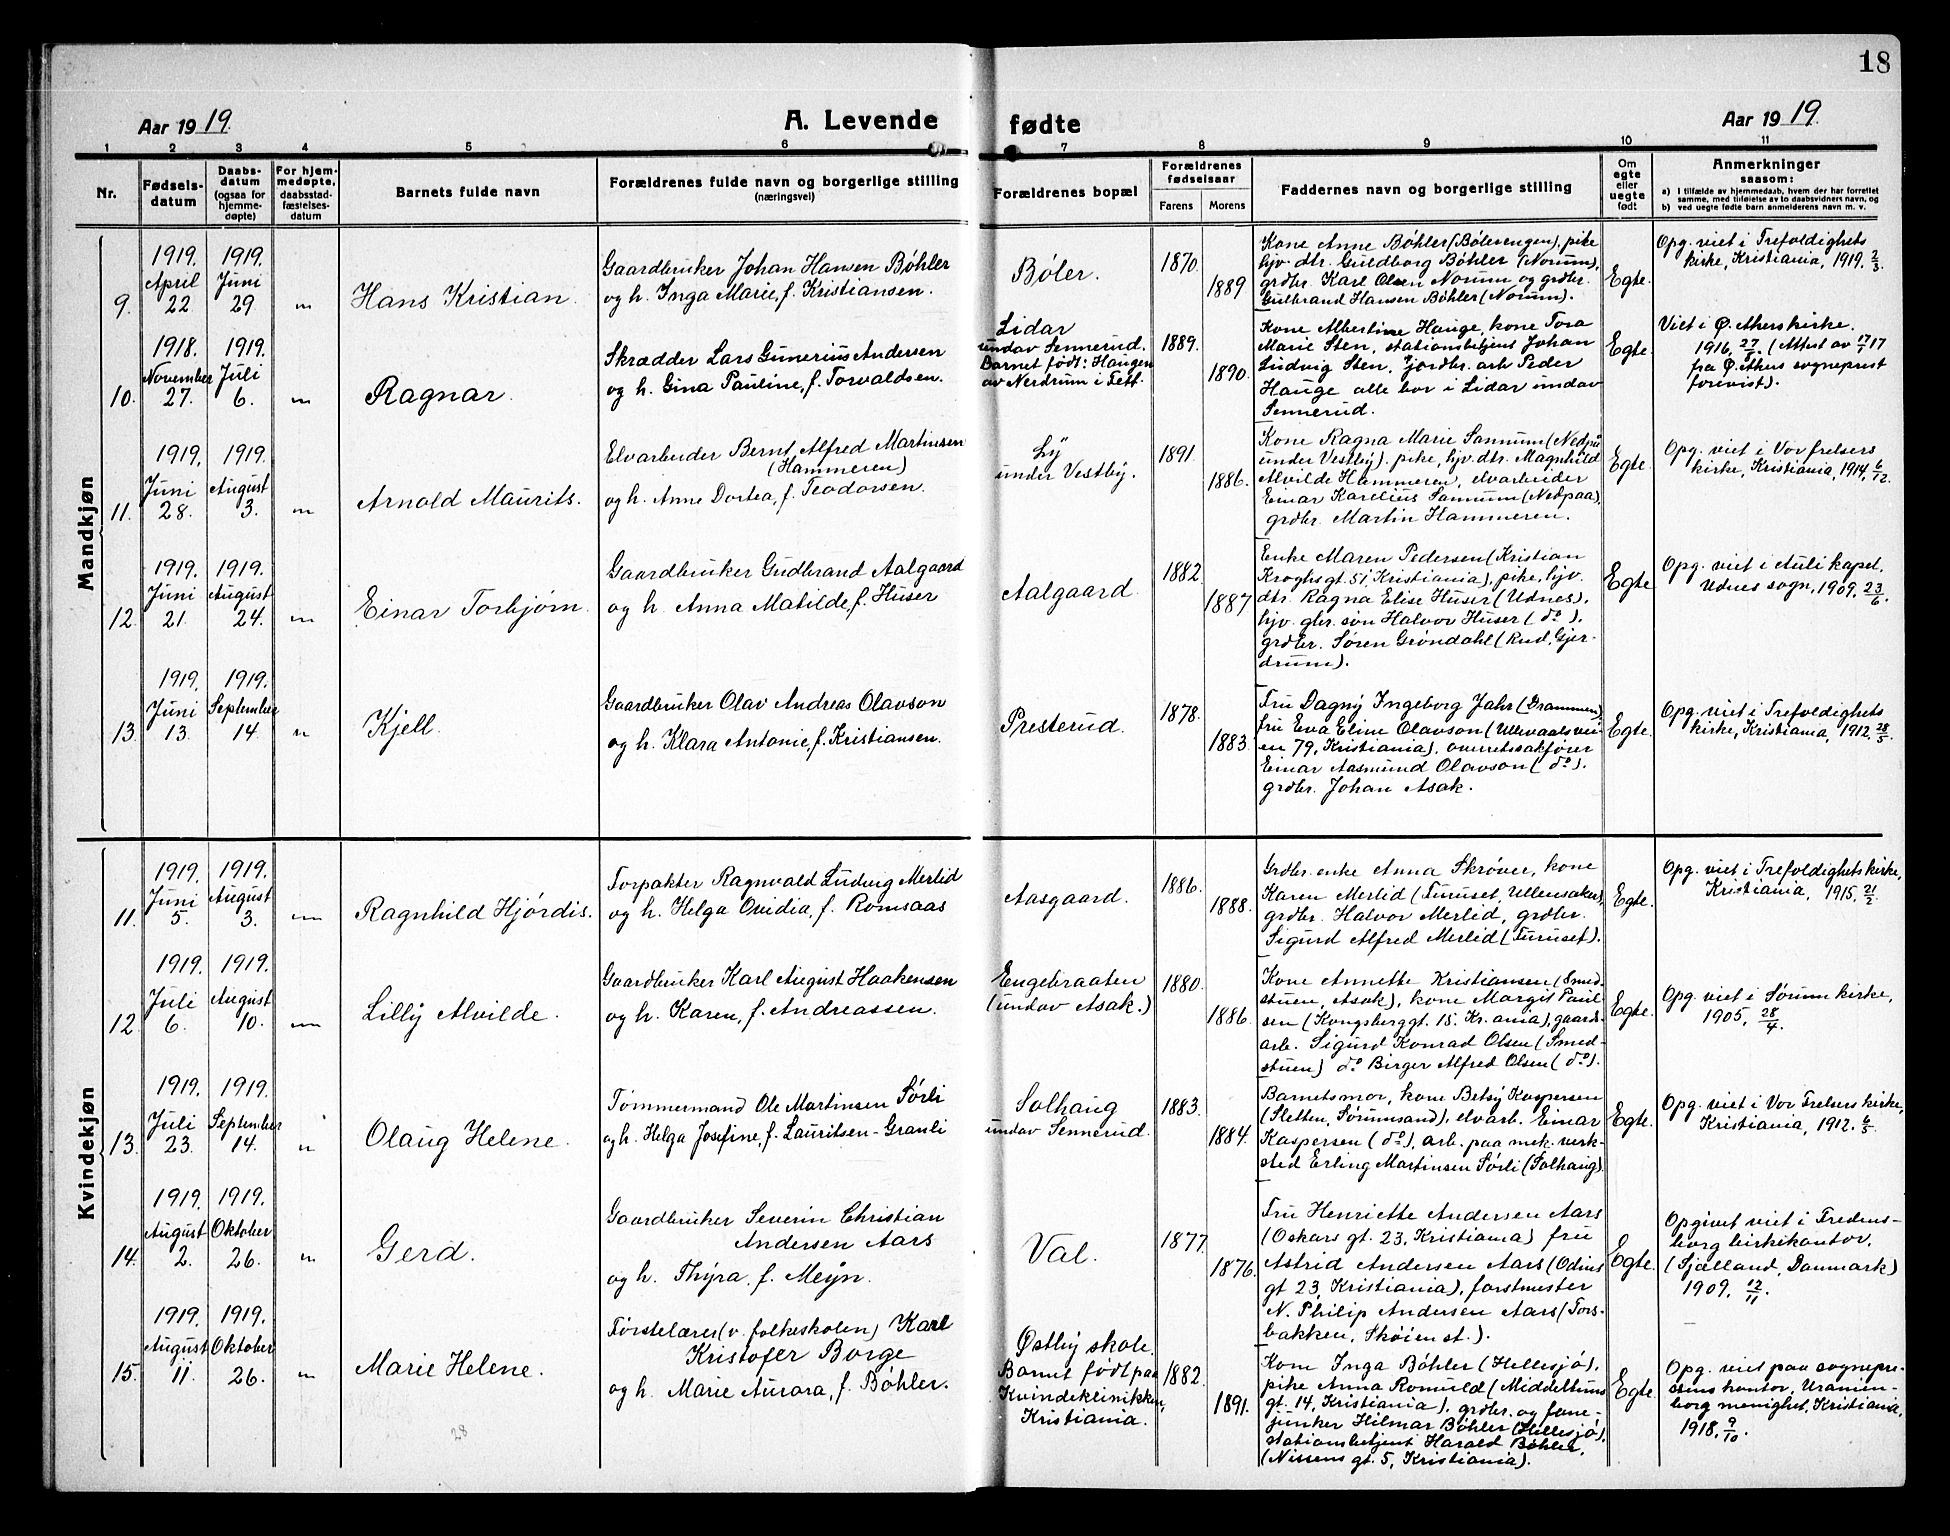 18
Aar 1919.
A. Levende fødte
Aar 1919.
1 2 3 4 5 6 7 8 9 10 11
Nr.
Fødsels-
datum
Daabs-
datum
(ogsaa for
hjemme-
døpte)
For hjem-
medøpte,
daabsstad-
fæstelses-
datum
Barnets fulde navn
Forældrenes fulde navn og borgerlige stilling
(næringsvei)
Forældrenes bopæl
Forældrenes
fødselsaar
Farens Morens
Faddernes navn og borgerlige stilling
Om
egte
eller
uegte
født
Anmerkninger
saasom:
a) I tilfælde av hjemmedaab, hvem der har forrettet
samme, med tilføielse av to daabsvidners navn, og
b) ved uegte fødte barn anmelderens navn m. v.
Mandkjøn
9.
1919.
April
22
1919.
Juni
29
"
Hans Kristian.
Gaardbruker Johan Hansen Bøhler
og h. Inga Marie, f. Kristiansen.
Bøler.
1870.
1889
Kone Anne Bøhler (Bølerengen), pike
hjv. dtr. Guldborg Bøhler (Norum),
grdbr. Karl Olsen Norum og grdbr.
Gulbrand Hansen Bøhler (Norum).
Egte.
Opg. viet i Trefoldighets
kirke, Kristiania, 1919. 2/3.
10.
1918.
November
27.
1919.
Juli
6.
"
Ragnar.
Skrædder Lars Gunerius Andersen
og h. Gina Pauline, f. Torvaldsen.
Lidar
undav Sennerud.
Barnet født: Haugen
av Nerdrum i Fett.
1889.
1890.
Kone Albertine Hauge, kone Tora
Marie Sten, stationsbetjent Johan
Ludvig Sten, jordbr. arb. Peder
Hauge alle bor i Lidar undav
Sennerud.
Egte.
Viet i Ø. Akers kirke.
1916, 27/8 (Attest av 17/7 17
fra Ø. Akers sogneprest
forevist).
11.
1919.
Juni
28.
1919.
August
3.
"
Arnold Maurits.
Elvarbeider Bernt Alfred Martinsen
(Hammeren)
og h. Anne Dortea, f. Teodorsen.
Ly
under Vestby.
1891.
1886.
Kone Ragna Marie Sannum (Nedpaa
under Vestby). pike, hjv. dtr. Magnhild
Alvilde Hammeren, elvarbeider
Einar Karelius Sannum (Nedpaa),
grdbr. Martin Hammeren.
Egte.
Opg. viet i Vor frelsers
kirke, Kristiania, 1914, 6/12.
12.
1919.
Juni
21.
1919.
August
24.
"
Einar Torbjørn.
Gaardbruker Gudbrand Aalgaard
og h. Anna Matilde, f. Huser
Aalgaard.
1882.
1887
Enke Maren Pedersen (Kristian
Kroghs gt. 51, Kristiania), pike, hjv.
dtr. Ragna Elise Huser (Udnes),
hjv. gbr. søn Halvor Huser ( do ).
grdbr. Søren Grøndahl (Rud, Gjer-
drum).
Egte
Opg. viet i Auli kapel,
Udnes sogn, 1909, 23/6.
13.
1919.
Juni
13.
1919.
September
14.
"
Kjell.
Gaardbruker Olav Andreas Olavson
og h. Klara Antonie, f. Kristiansen.
Presterud.
1878.
1883.
Fru Dagny Ingeborg Jahr (Drammen),
fru Eva Eline Olavson (Ullevaalsvei-
en 79, Kristiania), overretssakfører
Einar Aasmund Olavson ( do ).
grdbr. Johan Asak.
Egte.
Opg. viet i Trefoldighets
kirke, Kristiania, 1912, 28/5.
Kvindekjøn
11.
1919.
Juni
5.
1919.
August
3.
"
Ragnhild Hjørdis.
Forpakter Ragnvald Ludvig Merlid
og h. Helga Ovidia, f. Romsaas
Aasgaard.
1886.
1888.
Grdbr. enke Anna Skrøver, kone
Karen Merlid (Furuset, Ullensaker),
grdbr. Halvor Merlid, grdbr.
Sigurd Alfred Merlid (Furuset).
Egte.
Opg. viet i Trefoldighets kirke,
Kristiania, 1915, 21/2.
12.
1919.
Juli
6.
1919.
August
10.
"
Lilly Alvilde.
Gaardbruker Karl August Haakensen
og h. Karen, f. Andreassen.
Engebraaten
(undav Asak.)
1880.
1886.
Kone Annette Kristiansen (Smed-
stuen, Asak), kone Margit Paul-
sen (Kongsberggt. 15. Kr.ania), gaards-
arb. Sigurd Konrad Olsen (Smed-
stuen) do Birger Alfred Olsen ( do ).
Egte.
Opg. viet i Sørum kirke,
1905, 28/4.
13.
1919.
Juli
23.
1919.
September
14.
"
Olaug Helene.
Tømmermand Ole Martinsen Sørli
og h. Helga Josefine, f. Lauritsen-Granli
Solhaug
undav Sennerud.
1883.
1884.
Barnets mor, kone Betsy Kaspersen
(Sletten, Sørumsand), elvarb. Einar
Kaspersen ( do ), arb. paa mek. verk-
sted Erling Martinsen Sørli (Solhaug).
Egte.
Opg. viet i Vor Frelsers kirke,
Kristiania, 1912. 6/5.
14.
1919.
August
2.
1919.
Oktober
26.
"
Gerd.
Gaardbruker Severin Christian
Andersen Aars
og h. Thyra, f. Meyn.
Val.
1877.
1876.
Fru Henriette Andersen Aars
(Oskars gt. 23, Kristiania) fru
Astrid Andersen Aars (Odins
gt 23, Kristiania), forstmester
N. Philip Andersen Aars (Fors-
bakken, Skøien st.).
Egte.
Opgivet viet i Fredens-
borg birkekontor,
(Sjælland, Danmark)
1909. 12/11.
15.
1919.
August
11.
1919.
Oktober
26.
"
Marie Helene.
Førstelærer (v. folkeskolen) Karl
Kristofer Borge
og h. Marie Aurora, f. Bøhler.
Østby skole.
Barnet født paa
Kvindeklinikken,
Kristiania.
1882.
1891.
Kone Inga Bøhler (Hellesjø).
pike Anna Romuld (Middelthuns
gt. 14, Kristiania), grdbr. og fane-
junker Hilmar Bøhler (Hellesjø),
stationsbetjent Harald Bøhler,
(Nissens gt. 5, Kristiania).
Egte.
Opg. viet paa sognepre-
stens kontor, Uranien-
borg menighet, Kristiania,
1918. 9/10.
28